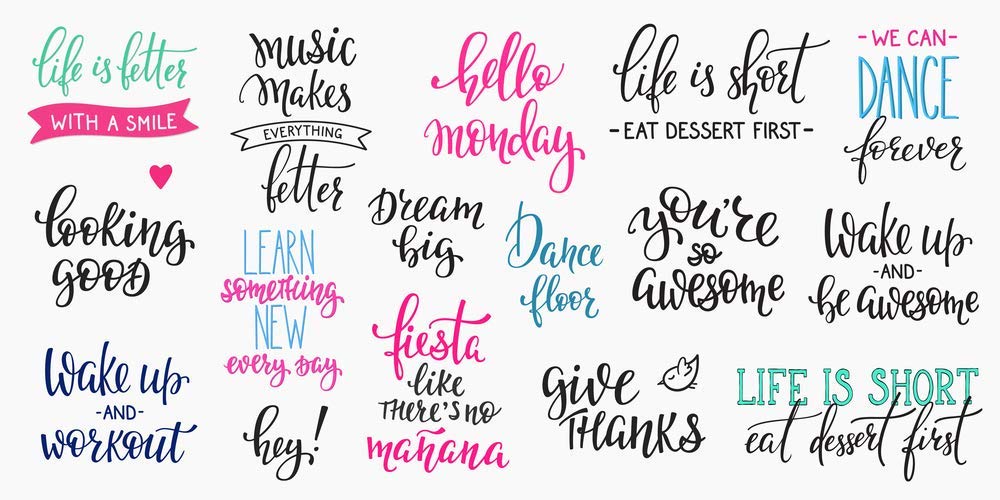 life is better
WITH A SMILE
music
makes
EVERYTHING
better
hello
monday
life is short
- EAT DESSERT FIRST -
- WE CAN -
DANCE
forever
looking
GOOD
LEARN
something
NEW
every day
Dream
big
Dance
floor
you're
so
awesome
Wake up
- AND -
be awesome
Wake up
- AND -
workout
hey!
fiesta
like
THERE'S NO
mañana
give
THANKS
LIFE IS SHORT
eat dessert first